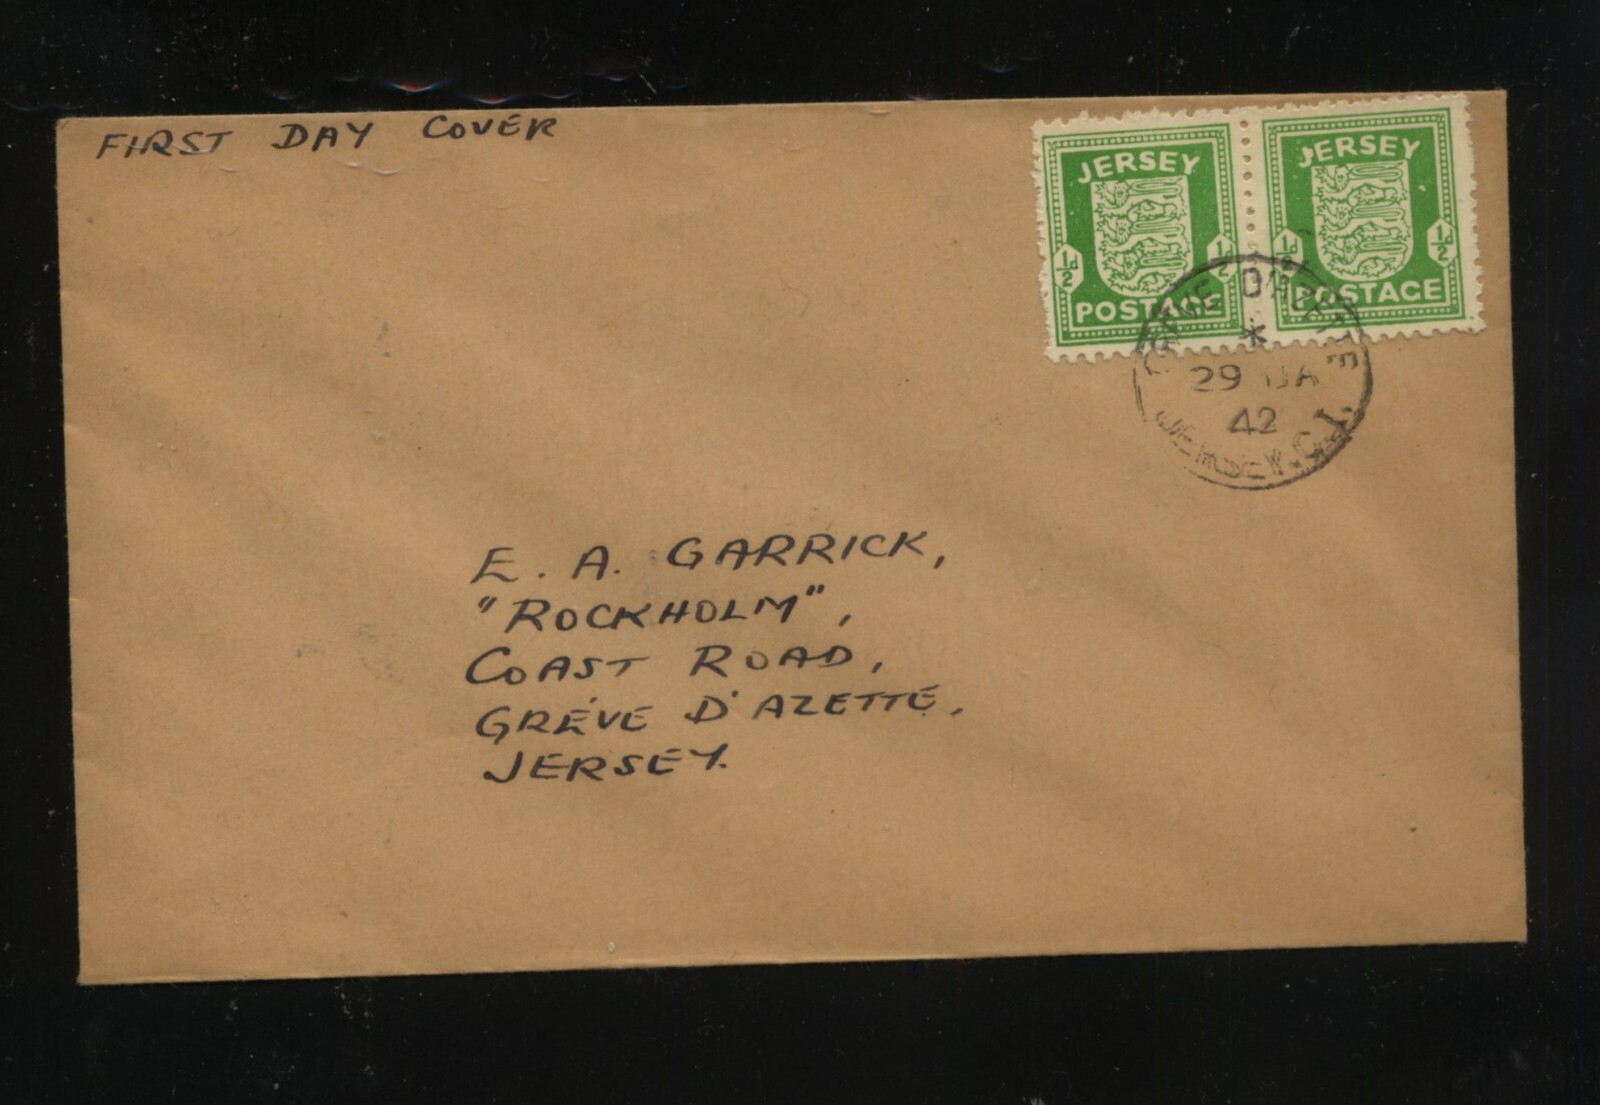 FIRST DAY COVER
JERSEY
½d
½
POSTAGE
JERSEY
½d
½
POSTAGE
GREVE D'AZETTE
*
29 JA
42
JERSEY. C.I.
E. A. GARRICK,
"ROCKHOLM",
COAST ROAD,
GRÉVE D'AZETTE,
JERSEY.